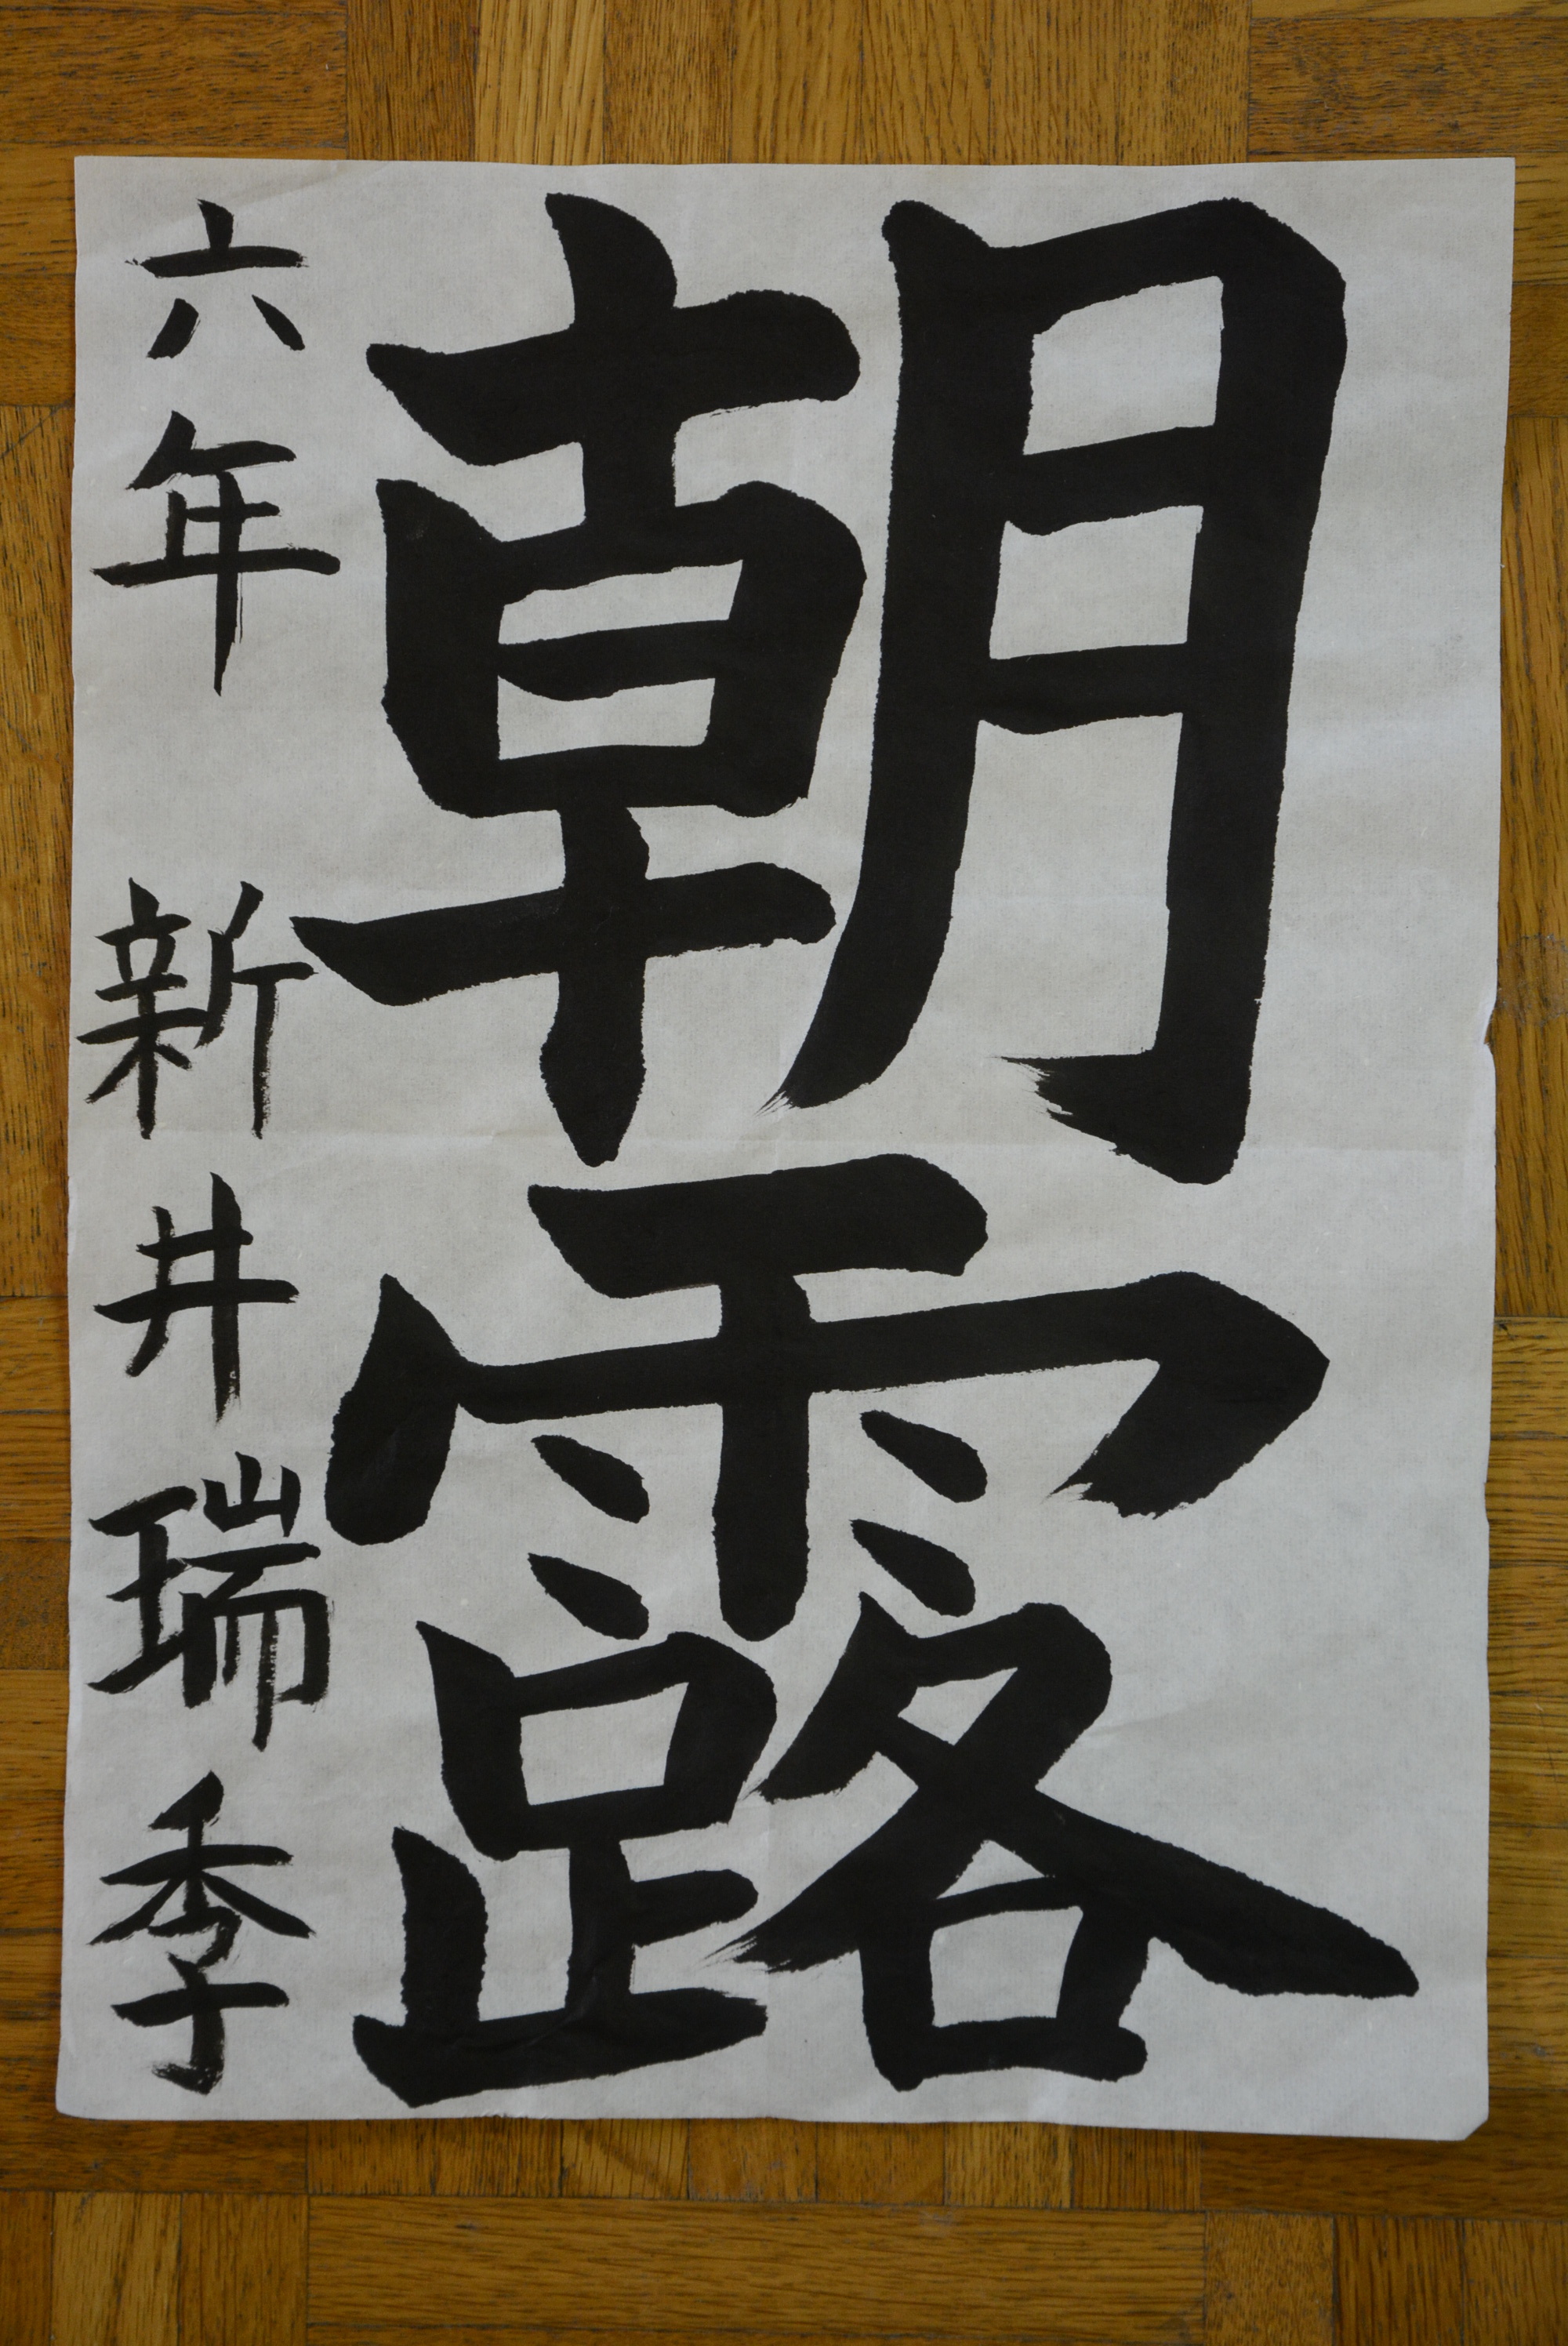 朝露
六年 新井瑞季